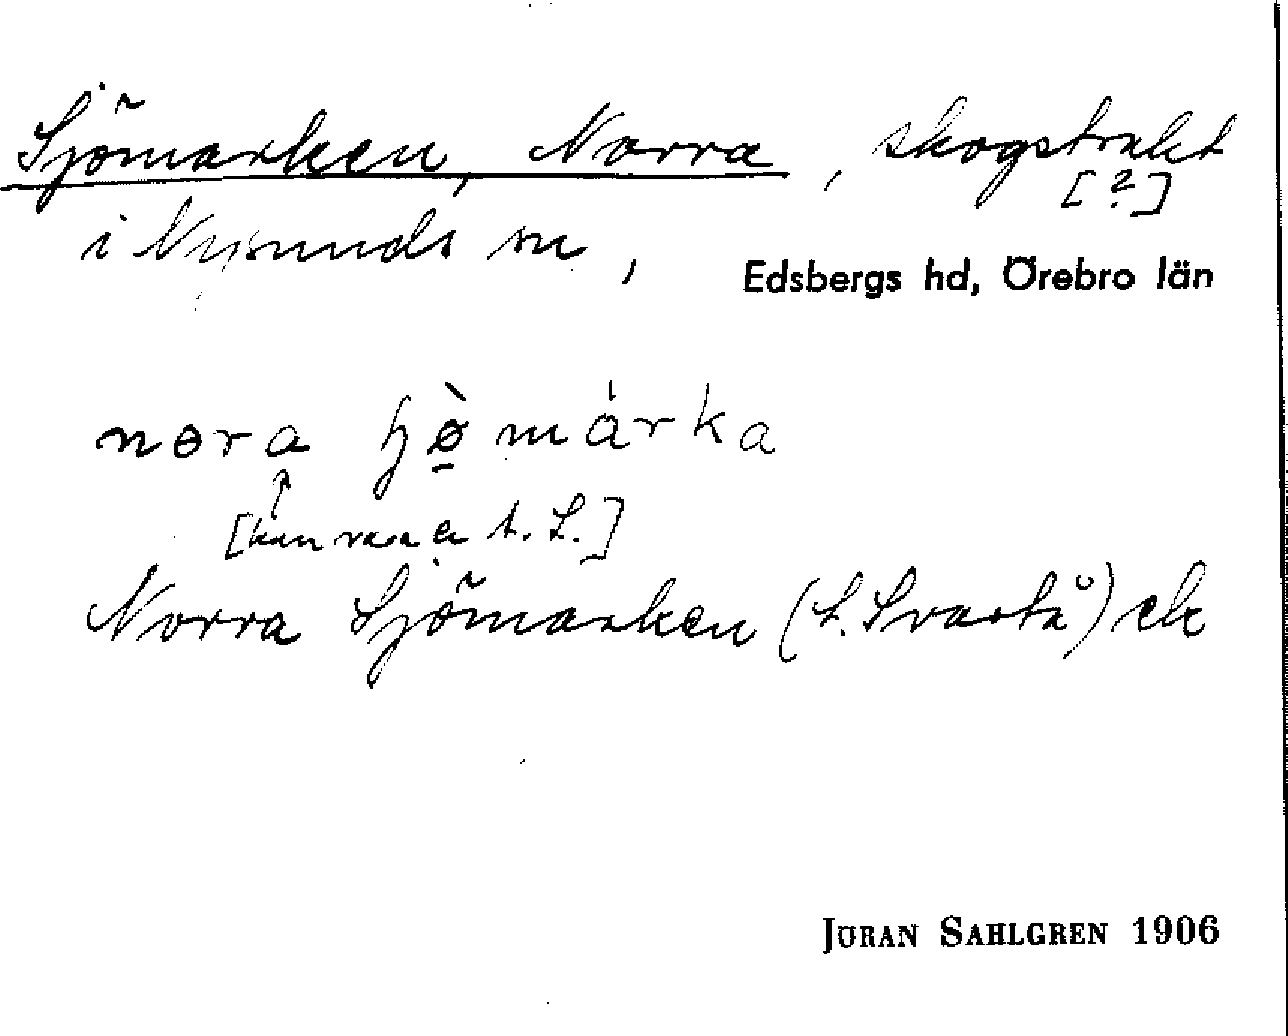 Sjömarken, Norra, skogstrakt
[?]
i Nysunds sn,
Edsbergs hd, Örebro län
nɵra ɧø̀màrka
↑
[kan vara e t. L.]
Norra Sjömarken (L. Svartå) ek
JÖRAN SAHLGREN 1906